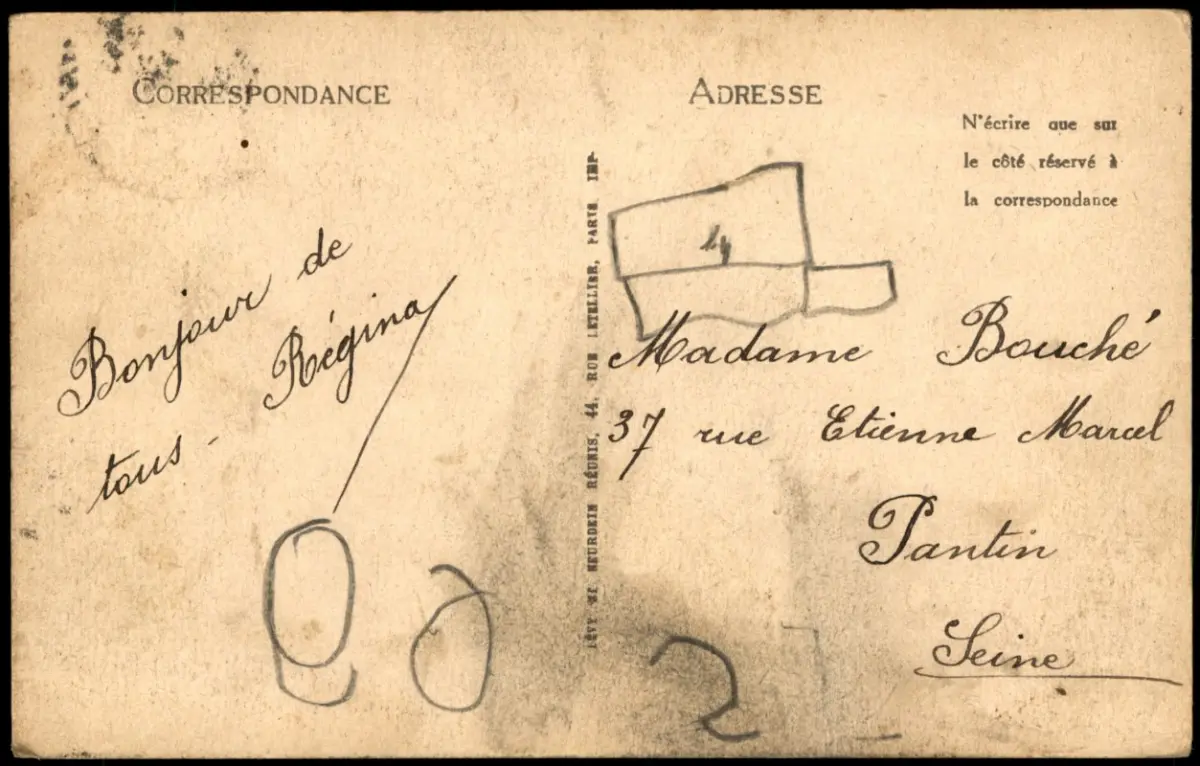 CORRESPONDANCE
Bonjour de
tous - Régina
ADRESSE
N'écrire que sur
le côté réservé à
la correspondance
LÉVY ET NEURDEIN RÉUNIS, 44, RUE LETELLIER, PARIS IMP.
Madame Bouché
37 rue Etienne Marcel
Pantin
Seine